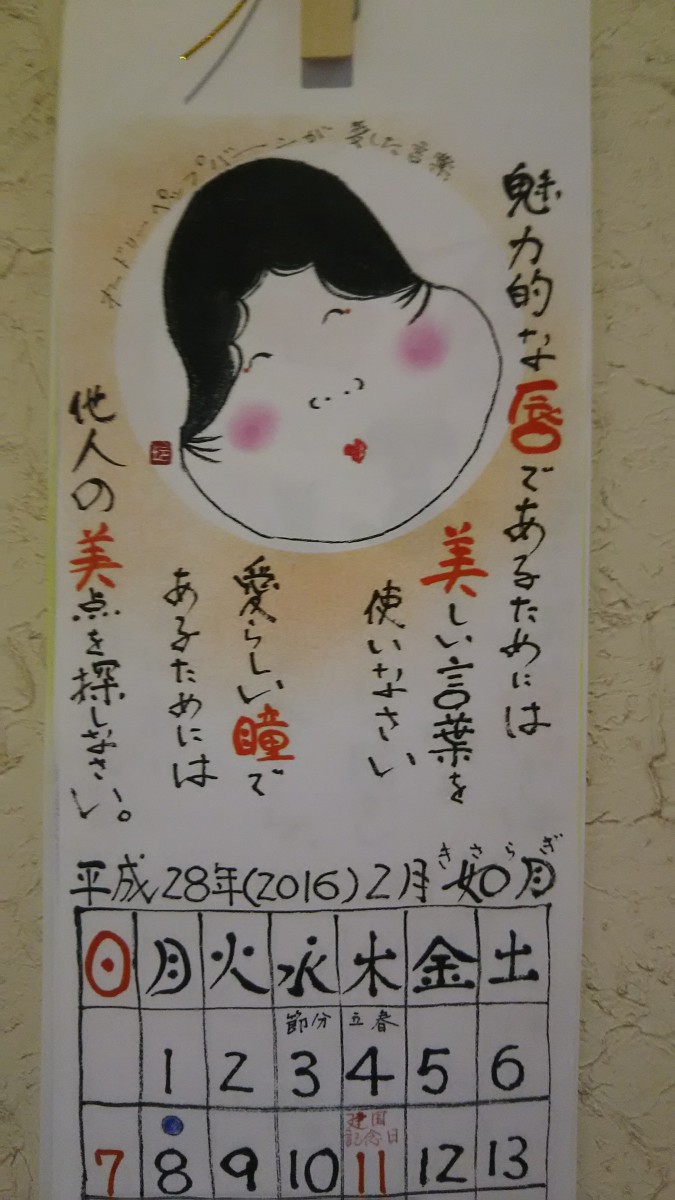 オードリーヘップバーンが愛した言葉
魅力的な唇であるためには
美しい言葉を
使いなさい
愛らしい瞳で
あるためには
他人の美点を探しなさい。
きさらぎ
平成28年(2016)2月 如月
日 月 火 水 木 金 土
節分 立春
1 2 3 4 5 6
建国
記念日
7 8 9 10 11 12 13